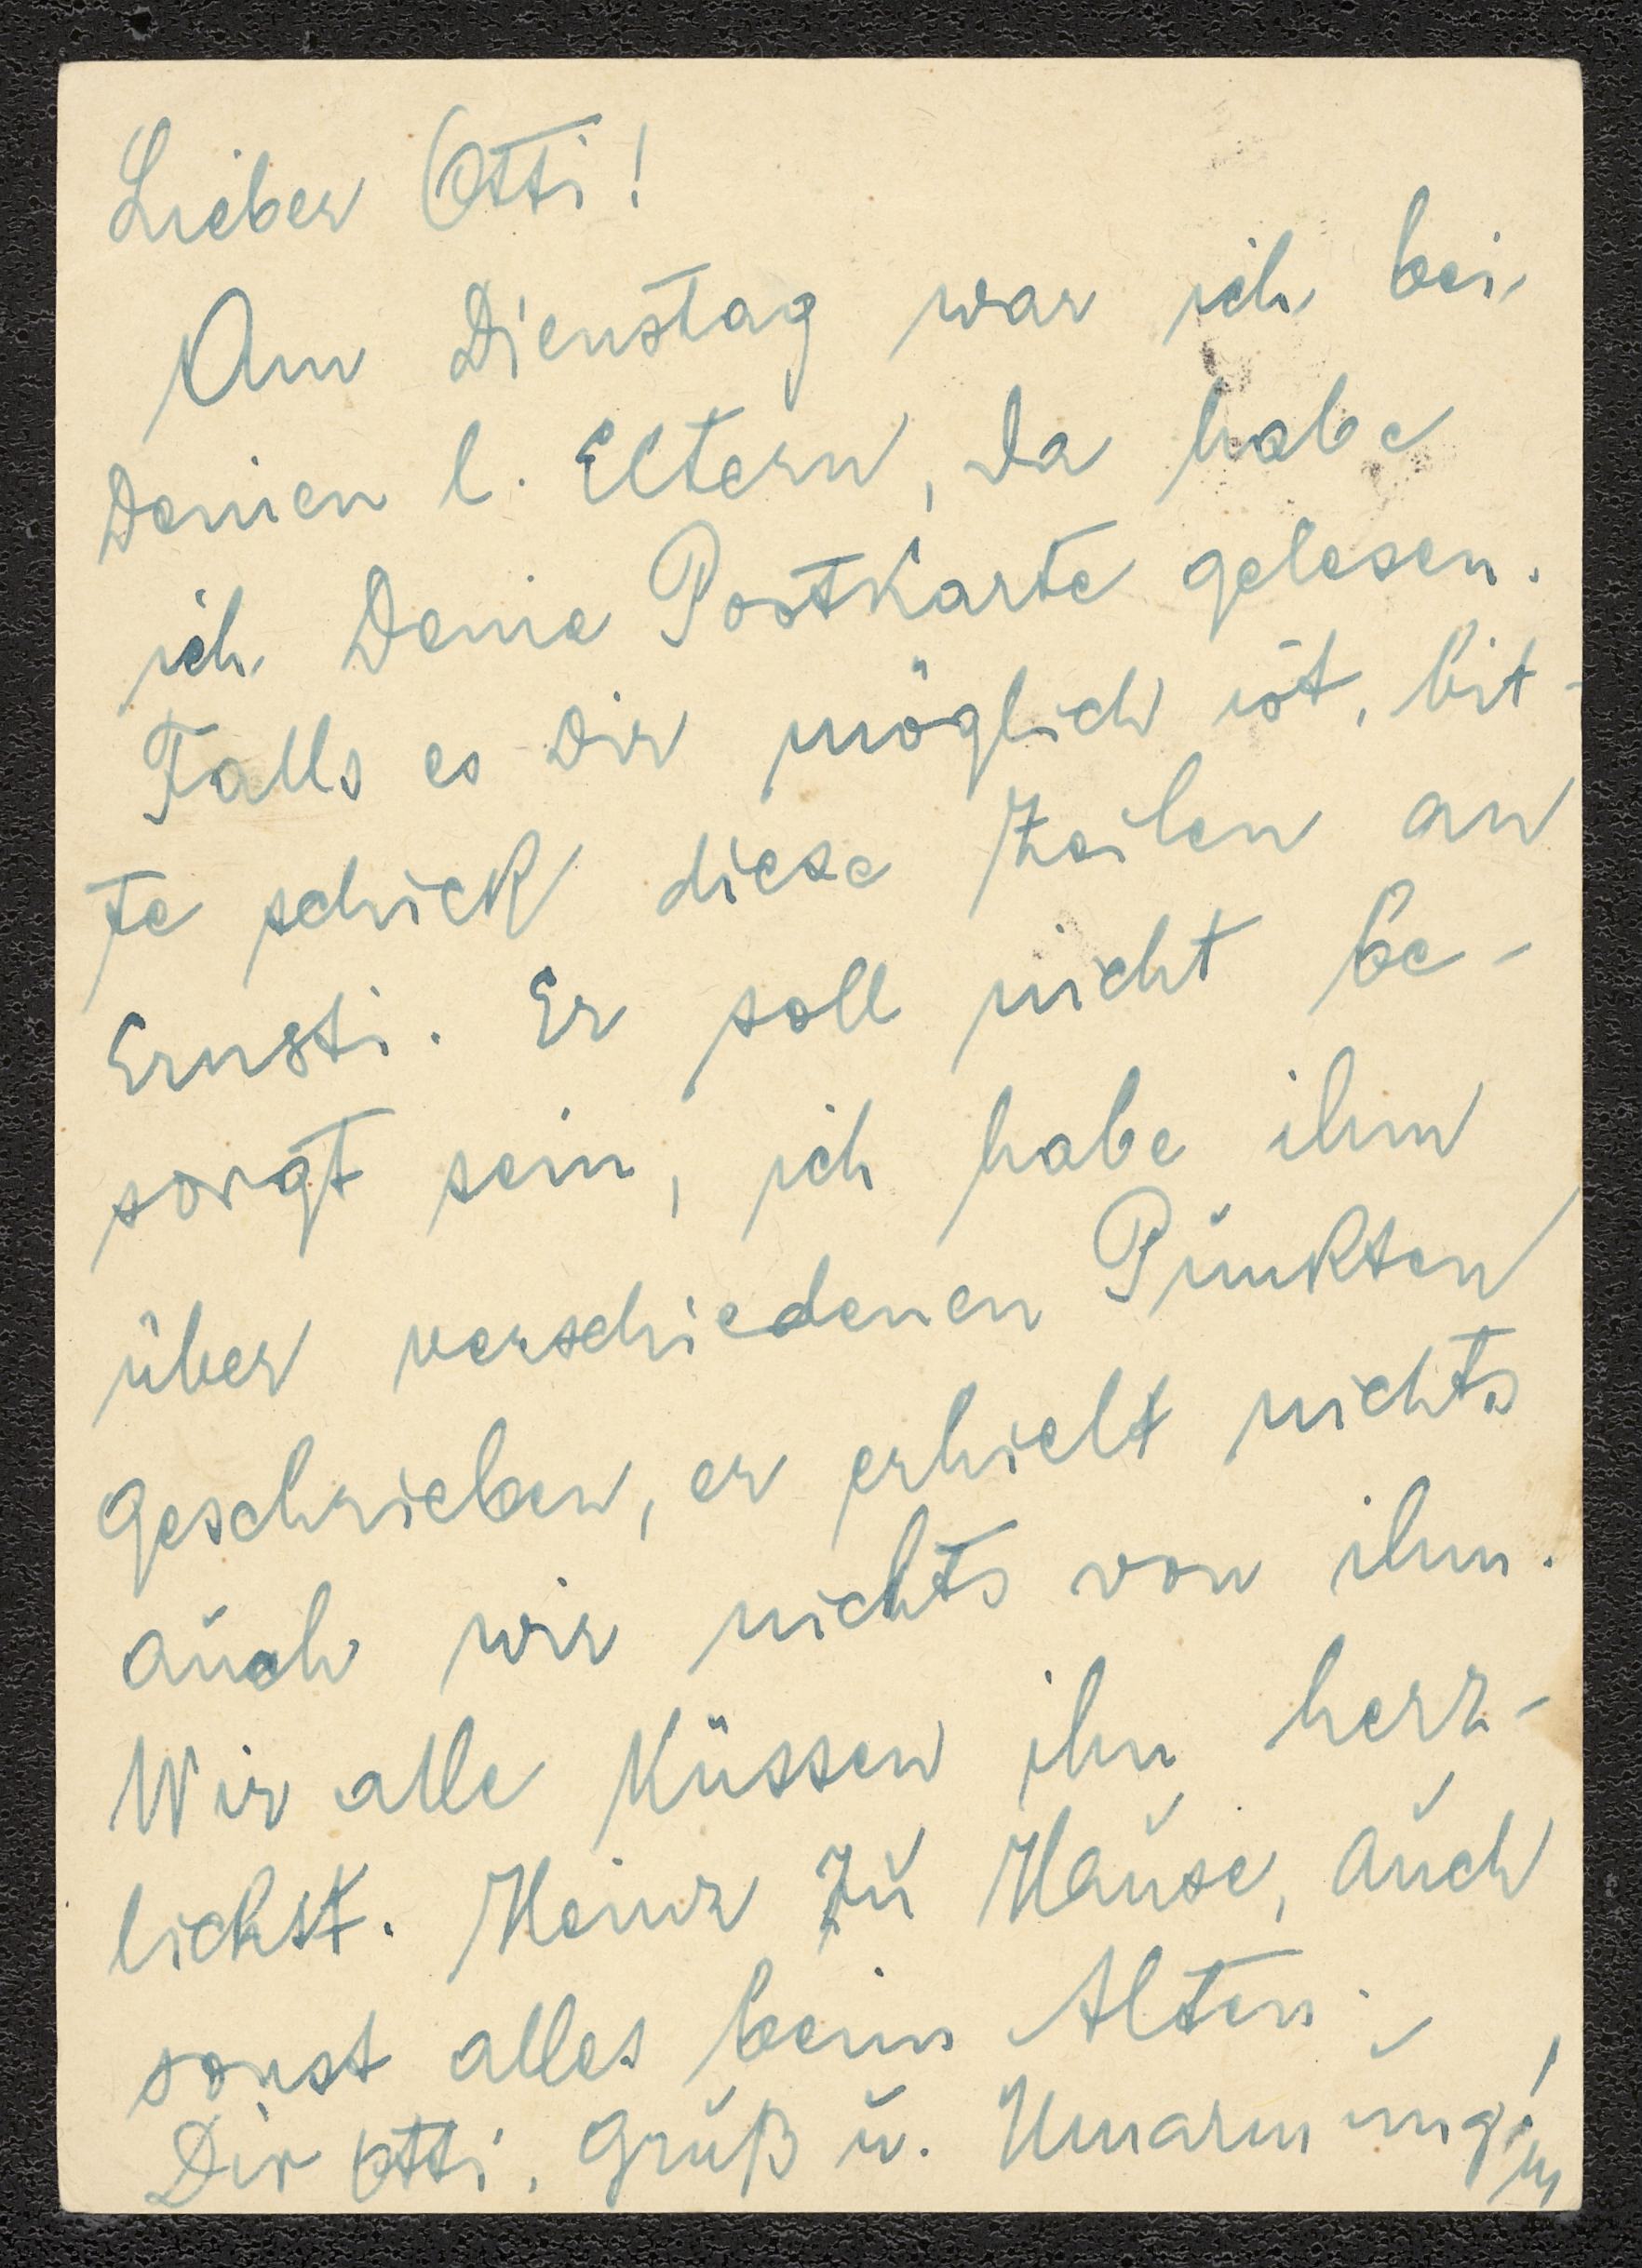 Lieber Otti!
Am Dienstag war ich bei
Deinen l. Eltern, da habe
ich Deine Postkarte gelesen.
Falls es Dir möglich ist, bit-
te schick diese Zeilen an
Ernsti. Er soll nicht be-
sorgt sein, ich habe ihm
über verschiedenen Punkten
geschrieben, er erhielt nichts
auch wir nichts von ihm.
Wir alle küssen ihn herz-
lichst. Heinz zu Hause, auch
sonst alles beim Alten.
Dir Otti, Gruß u. Umarmung!